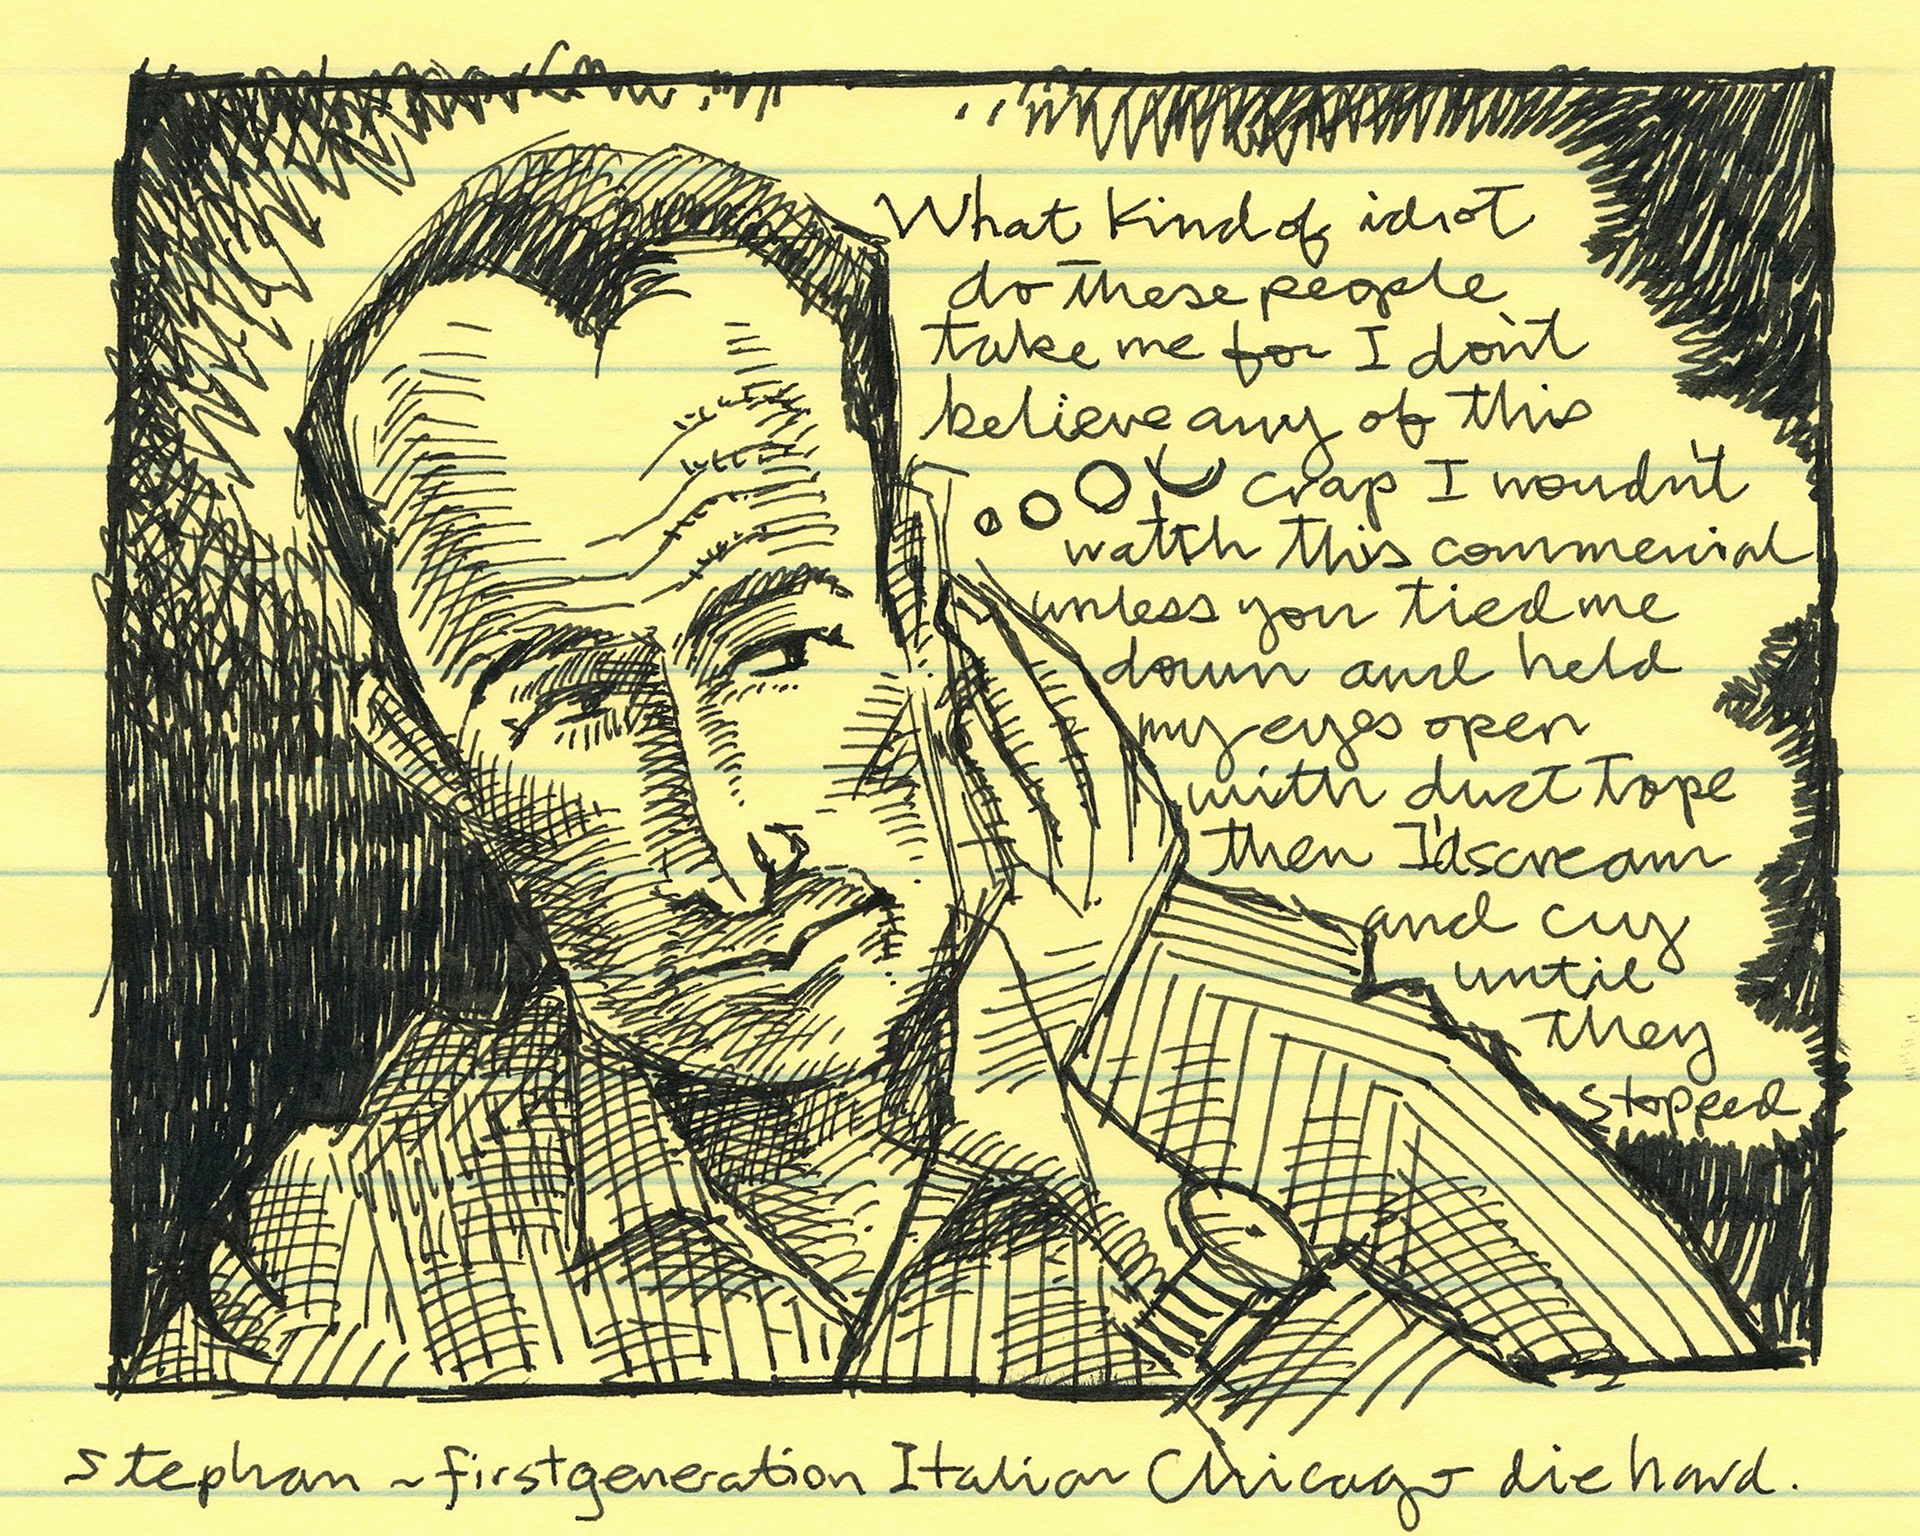 What kind of idiot
do these people
take me for I don't
believe any of this
crap I wouldn't
watch this commercial
unless you tied me
down and held
my eyes open
with duct tape
then I'd scream
and cry
until
they
stopped
Stephan ~ first generation Italian Chicago die hard.